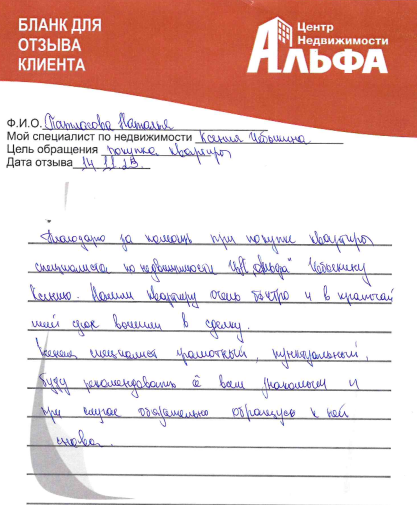 БЛАНК ДЛЯ
ОТЗЫВА
КЛИЕНТА
Центр
Недвижимости
АЛЬФА
Ф.И.О. Наталья
Мой специалист по недвижимости Ксения
Цель обращения покупка квартиры
Дата отзыва 14.11.23
Благодарю за помощь при покупке квартиры
специалиста по недвижимости ЦН "Альфа"
Ксению. Нашли квартиру очень быстро и в кратчай
ший срок вышли в сделку.
Ксения специалист грамотный, пунктуальный,
буду рекомендовать её всем знакомым и
при случае обязательно обращусь к ней
снова.